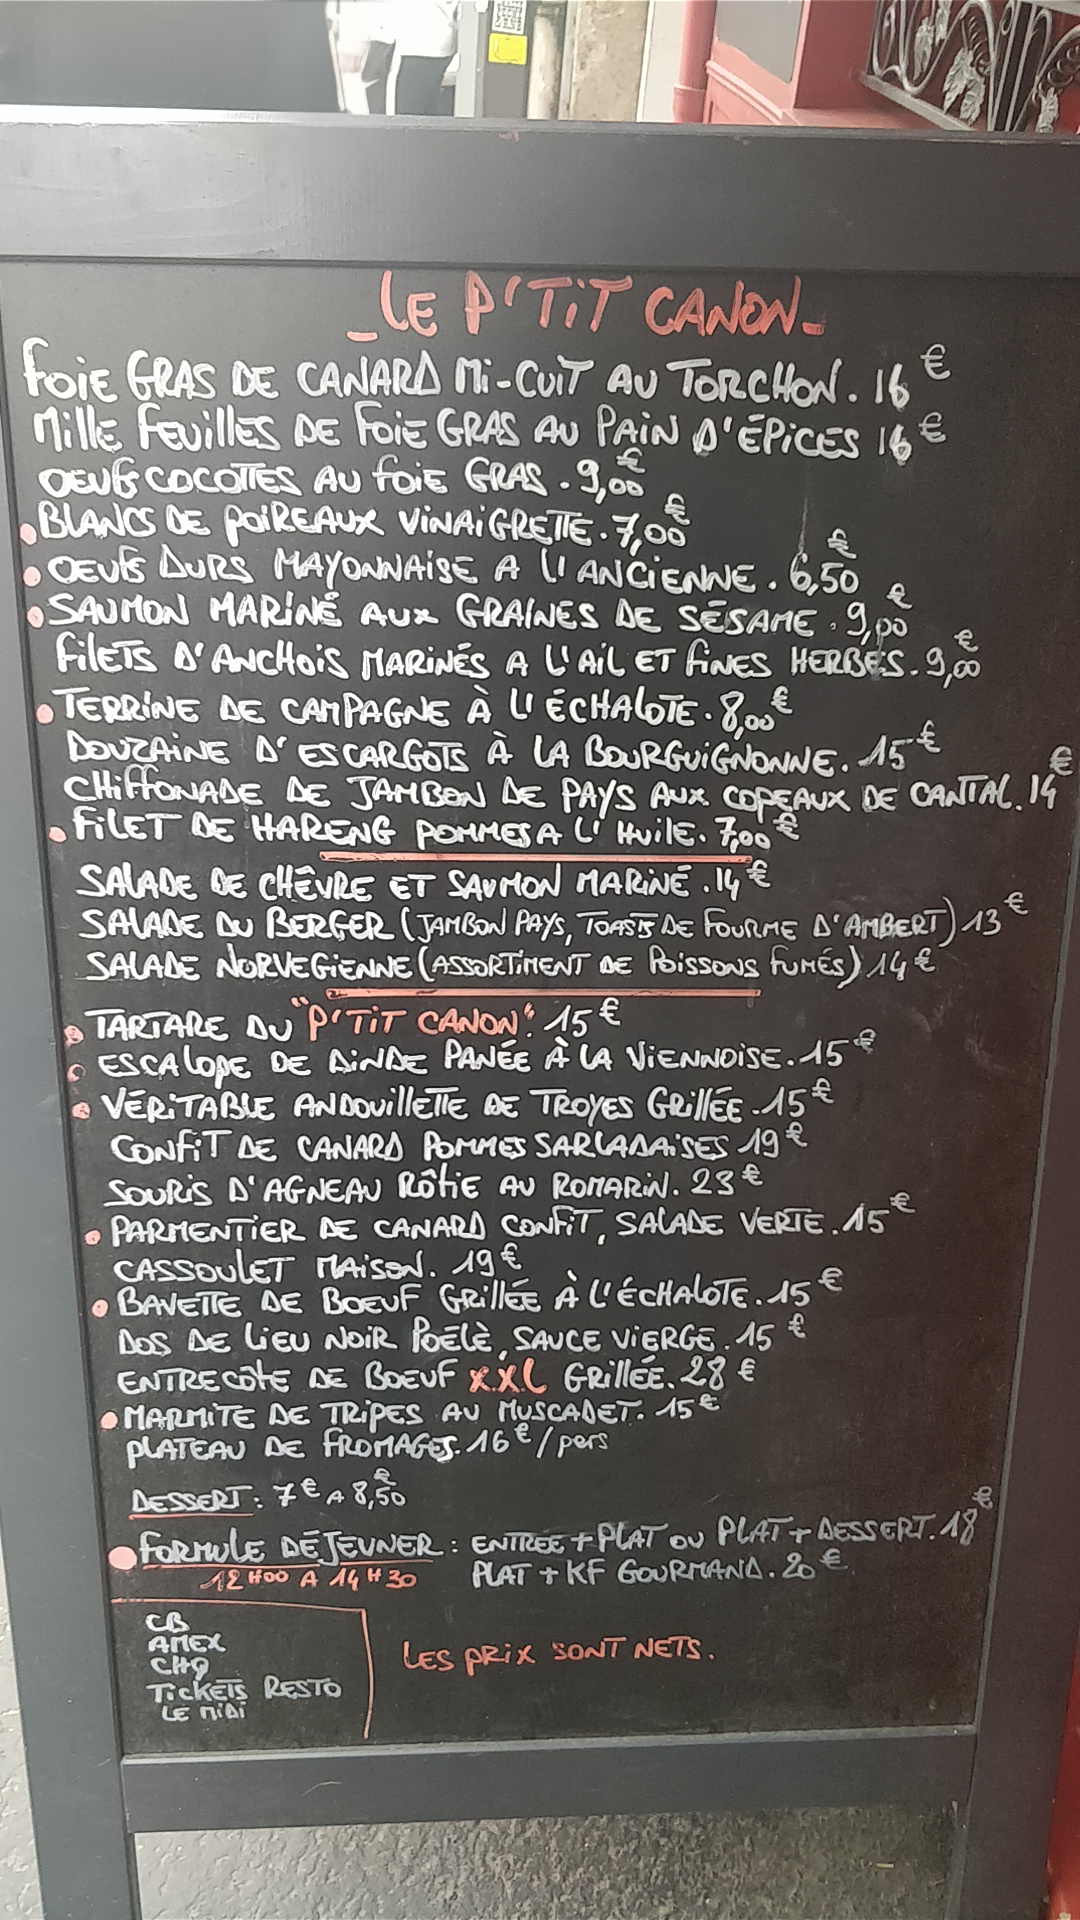 _LE P'TIT CANON_
FOIE GRAS DE CANARD MI-CUIT AU TORCHON. 16€
MILLE FEUILLES DE FOIE GRAS AU PAIN D'ÉPICES 16€
OEUFS COCOTTES AU FOIE GRAS. 9,00€
BLANCS DE POIREAUX VINAIGRETTE. 7,00€
OEUFS DURS MAYONNAISE A L'ANCIENNE. 6,50€
SAUMON MARINÉ AUX GRAINES DE SÉSAME. 9,00€
FILETS D'ANCHOIS MARINÉS A L'AIL ET FINES HERBES. 9,00€
TERRINE DE CAMPAGNE À L'ÉCHALOTE. 8,00€
DOUZAINE D'ESCARGOTS À LA BOURGUIGNONNE. 15€
CHIFFONADE DE JAMBON DE PAYS AUX COPEAUX DE CANTAL. 14€
FILET DE HARENG POMMES A L'HUILE. 7,00€
SALADE DE CHÊVRE ET SAUMON MARINÉ. 14€
SALADE DU BERGER (JAMBON PAYS, TOASTS DE FOURME D'AMBERT) 13€
SALADE NORVEGIENNE (ASSORTIMENT DE POISSONS FUMÉS) 14€
TARTARE DU "P'TIT CANON". 15€
ESCALOPE DE DINDE PANÉE À LA VIENNOISE. 15€
VÉRITABLE ANDOUILLETTE DE TROYES GRILLÉE. 15€
CONFIT DE CANARD POMMES SARLADAISES 19€
SOURIS D'AGNEAU RÔTIE AU ROMARIN. 23€
PARMENTIER DE CANARD CONFIT, SALADE VERTE. 15€
CASSOULET MAISON. 19€
BAVETTE DE BOEUF GRILLÉE À L'ÉCHALOTE. 15€
DOS DE LIEU NOIR POËLÈ, SAUCE VIERGE. 15€
ENTRECÔTE DE BOEUF X.X.L GRILLÉE. 28€
MARMITE DE TRIPES AU MUSCADET. 15€
PLATEAU DE FROMAGES. 16€/pers
DESSERT: 7€ A 8,50€
FORMULE DÉJEUNER: ENTRÉE + PLAT OU PLAT + DESSERT. 18€
12H00 A 14H30 PLAT + KF GOURMAND. 20€
CB
AMEX
CHQ
TICKETS RESTO
LE MIDI
LES PRIX SONT NETS.